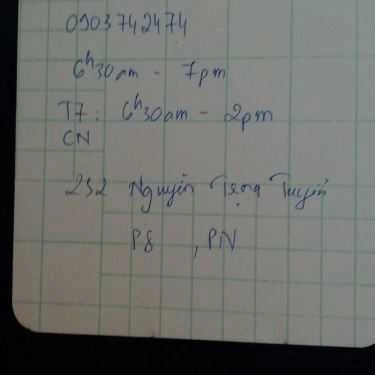 0903742474
6h30am - 7pm
T7: 6h30am - 2pm
CN
232 Nguyễn Trọng Tuyển
P8, PN